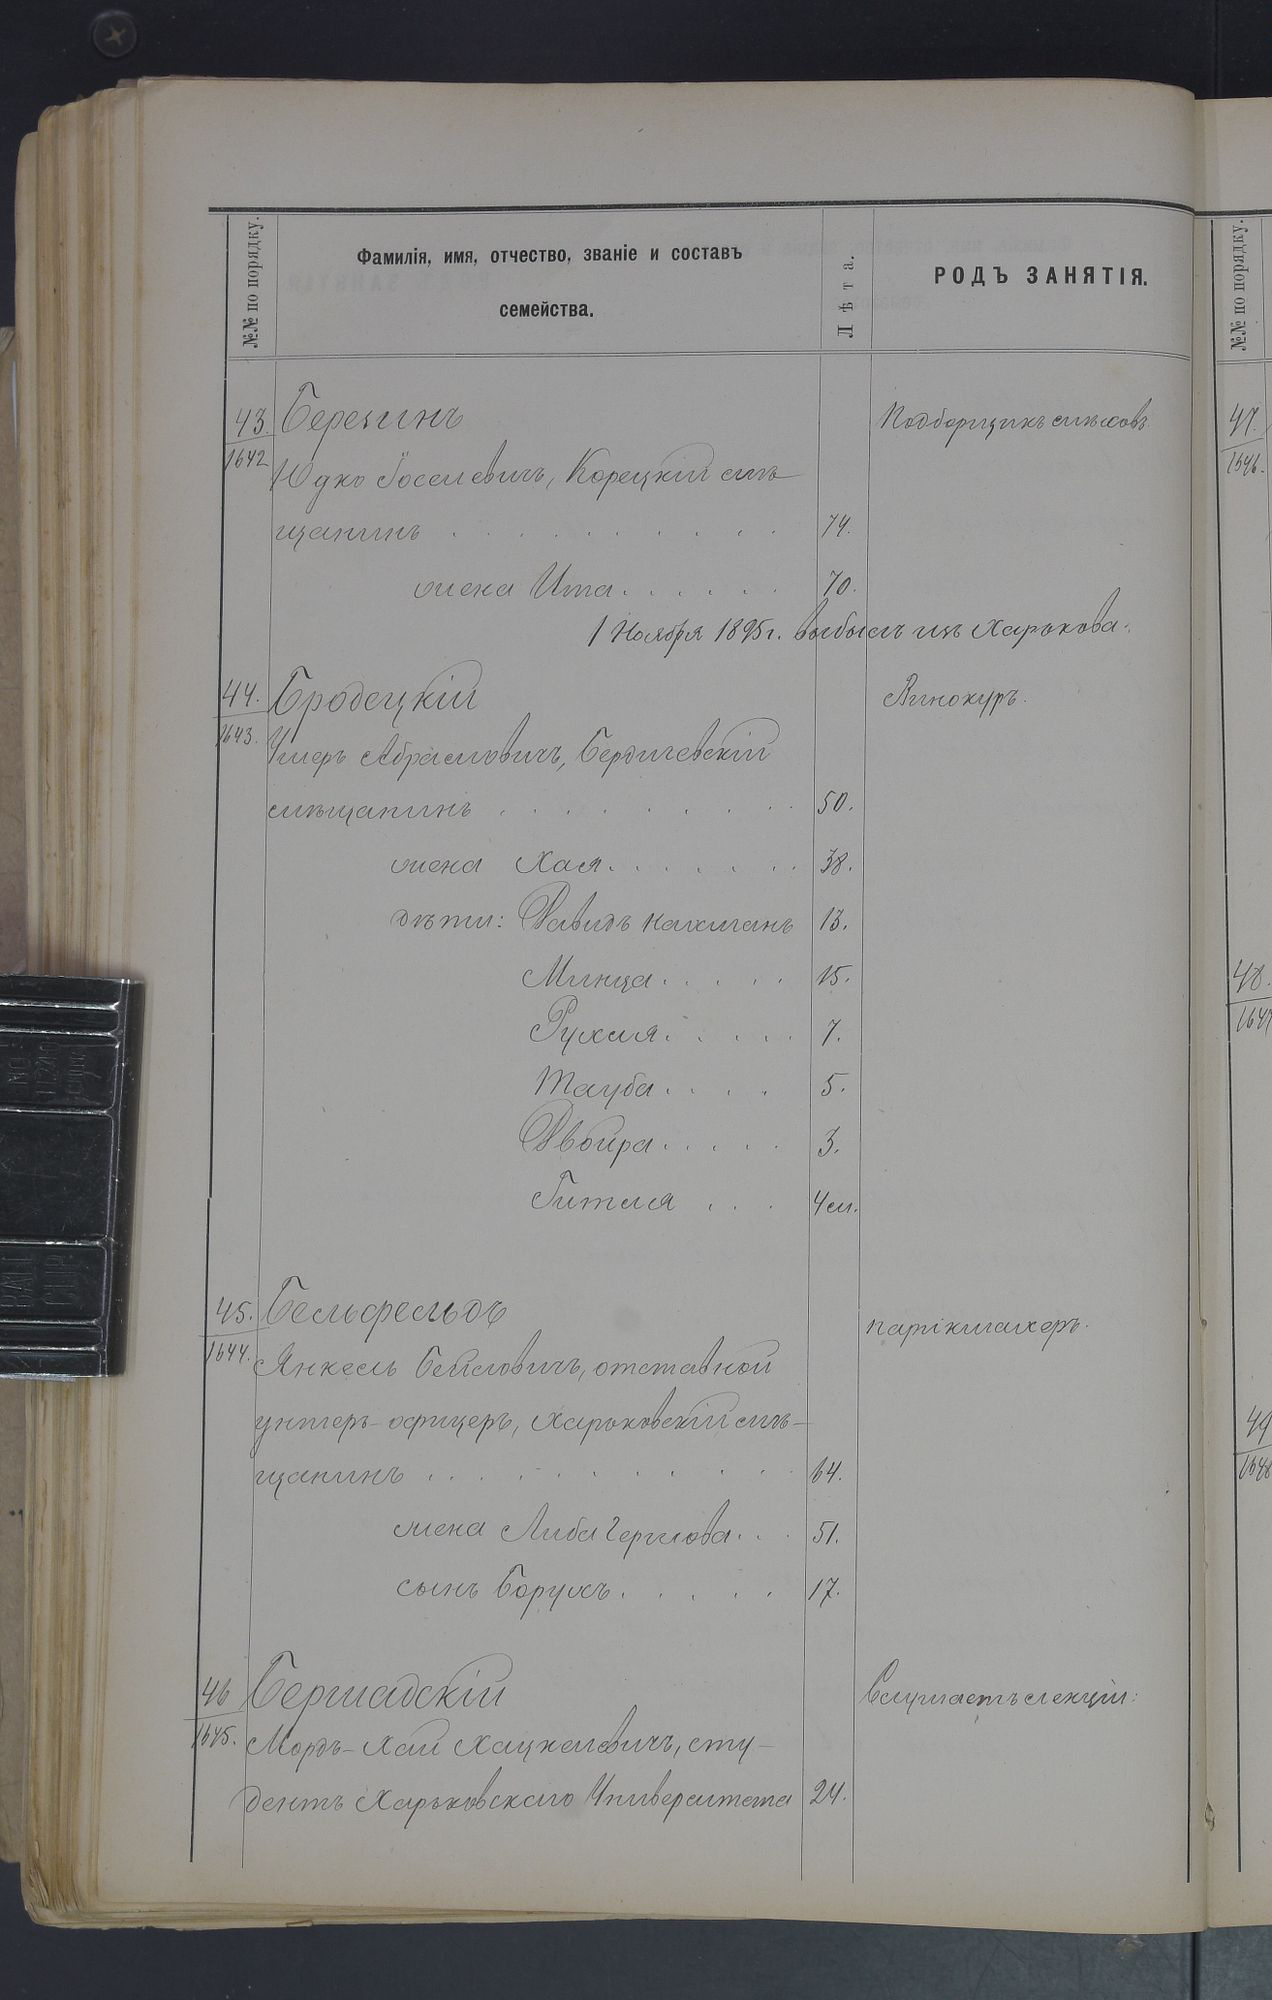 №№ по порядку.
Фамилія, имя, отчество, званіе и составъ
семейства.
Лѣта.
РОДЪ ЗАНЯТІЯ.
43.
1642
Березинъ
Подборщикъ мѣховъ.
Юдко Іоселевичъ, Корецкій мѣ-
щанинъ . . . . . . . . . . 74.
жена Ита . . . . . . 70.
1 Ноября 1895 г. выбылъ изъ Харькова.
44.
1643.
Бродецкій
Винокуръ.
Умеръ Абрамовичъ, Бердичевскій
мѣщанинъ . . . . . . . . . 50.
жена Хая . . . . . . . 38.
дѣти: Давидъ Нахманъ 13.
Минца . . . . . 15.
Рухля . . . . . 7.
Тауба . . . . 5.
Двойра . . . . . 3.
Гитля . . . 4 м.
45.
1644.
Бельфельдъ
Парикмахеръ.
Янкель Бейловичъ, отставной
унтеръ-офицеръ, Харьковскій мѣ-
щанинъ . . . . . . . . . . . 64.
жена Либа Гершова . . . 51.
сынъ Борухъ . . . . . 17.
46
1645.
Бершадскій
Слушаетъ лекціи.
Мордъ-Хай Хацкелевичъ, сту-
дентъ Харьковскаго Университета 24.
№№ по порядку.
47.
1646.
48.
1647
49
1648